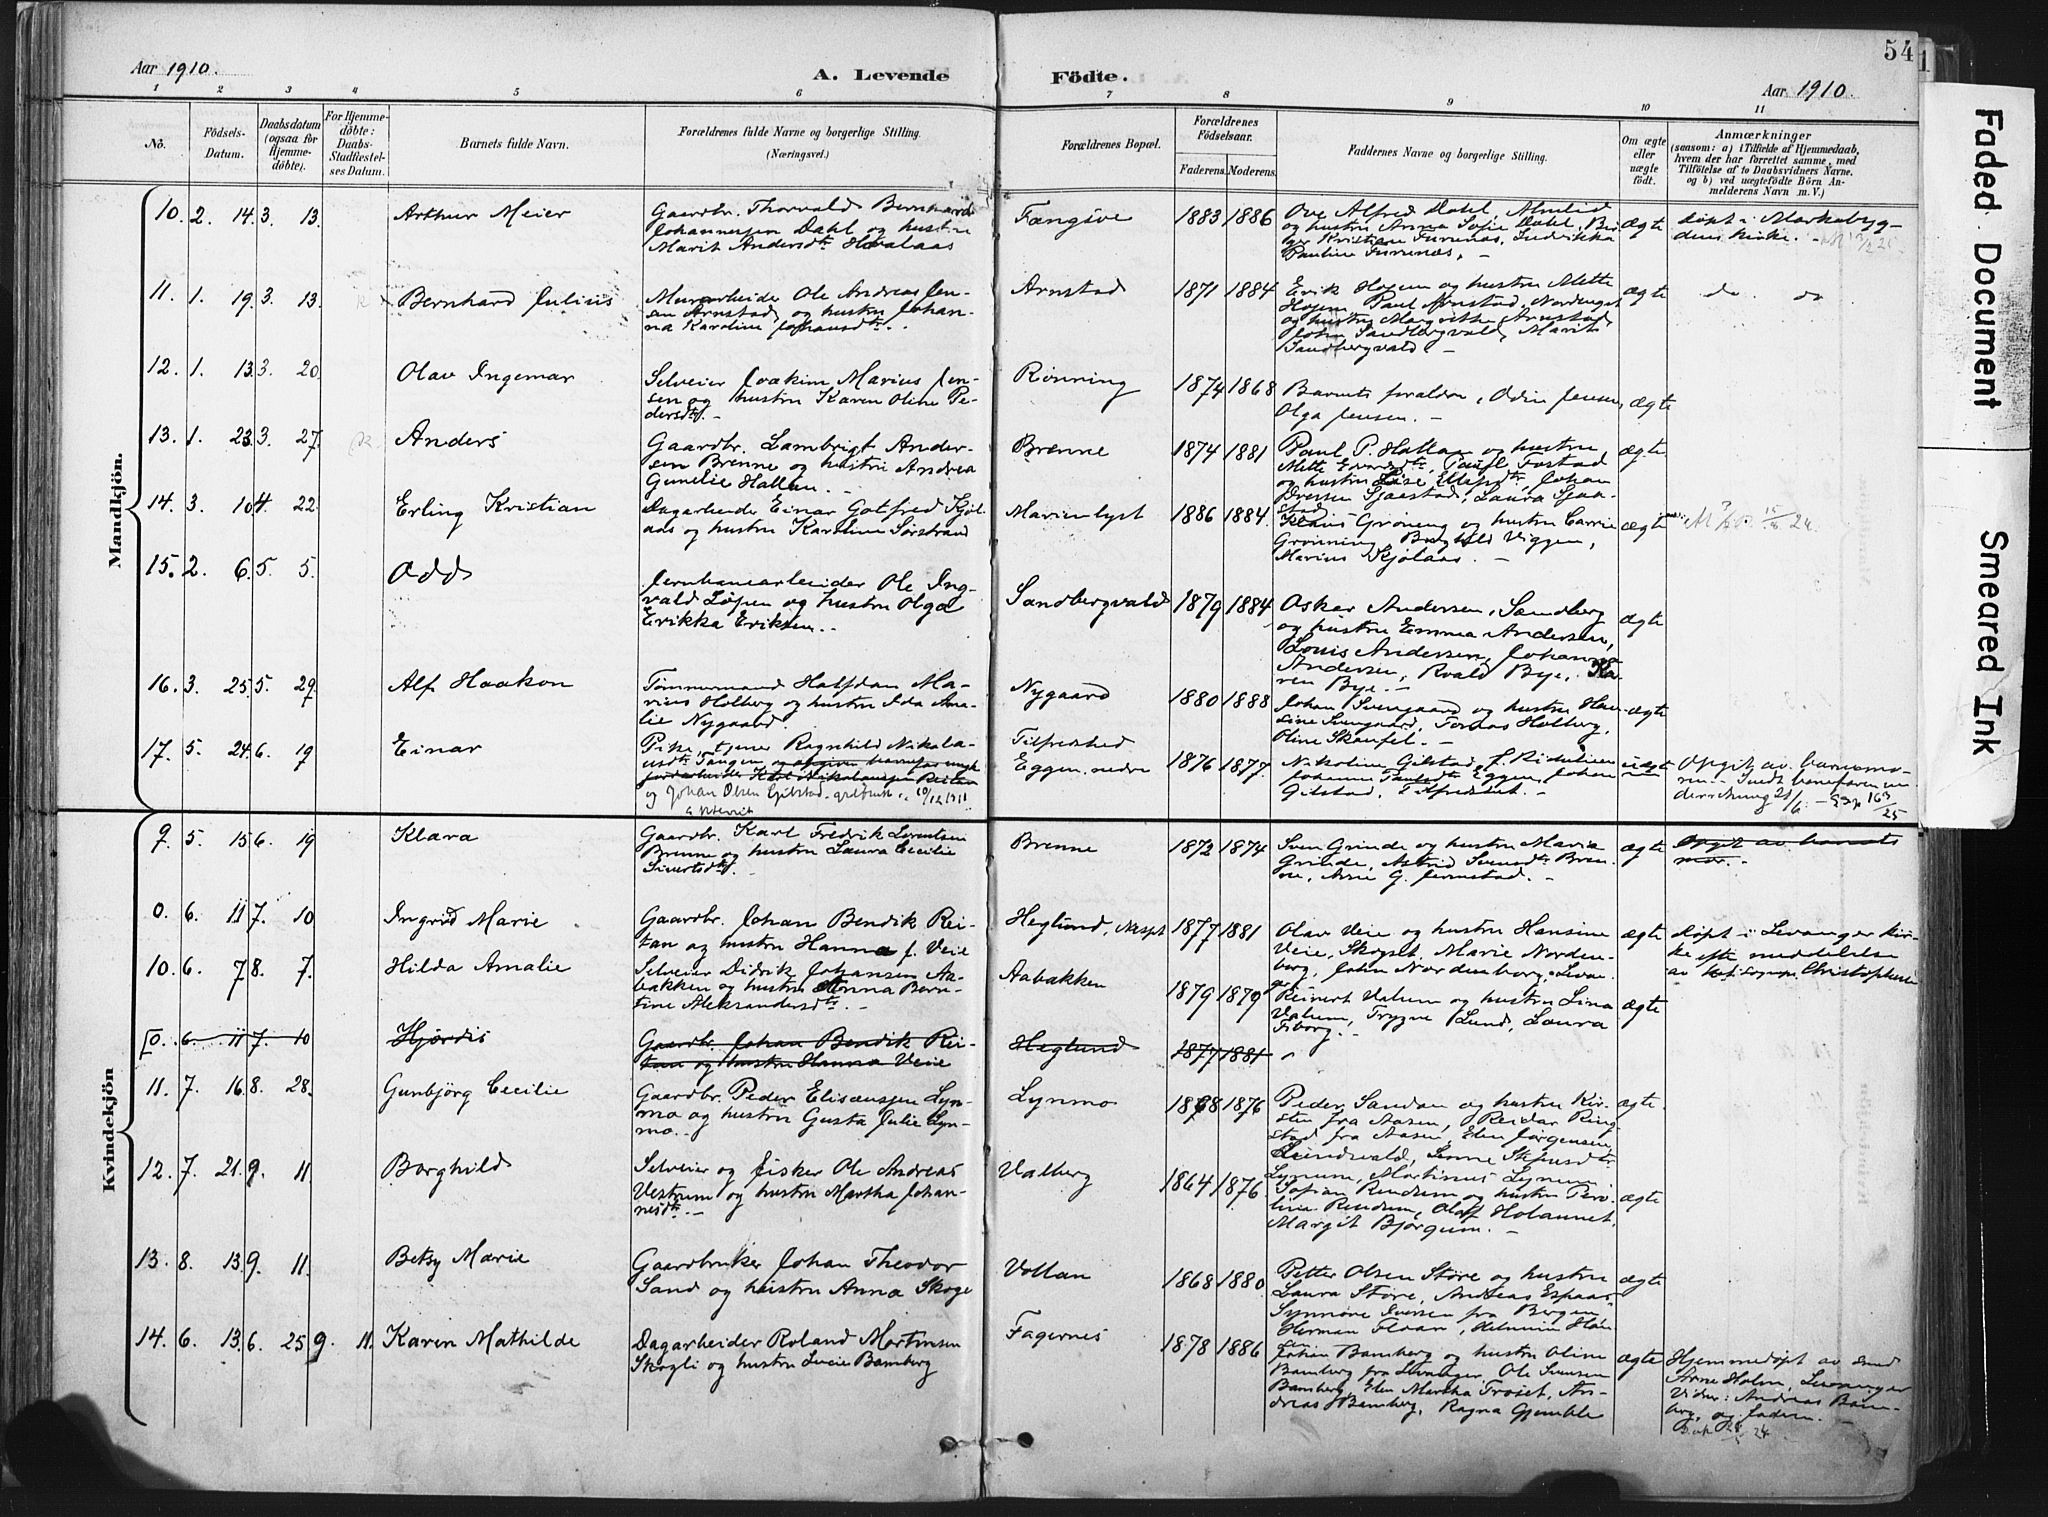 54
Aar 1910.
A. Levende Födte.
Aar 1910.
1 2 3 4 5 6 7 8 9 10 11
No.
Födsels-Datum.
Daabsdatum (ogsaa for Hjemme-döbte).
For Hjemme-döbte: Daabs-Stadfæstel-ses Datum.
Barnets fulde Navn.
Forældrenes fulde Navne og borgerlige Stilling.
(Næringsvei.)
Forældrenes Bopæl.
Forældrenes Födselsaar.
Faderens. Moderens.
Faddernes Navne og borgerlige Stilling.
Om ægte eller uægte födt.
Anmærkninger
(saasom: a) i Tilfælde af Hjemmedaab,
hvem der har forrettet samme, med
Tilföielse af to Daabsvidners Navne,
og b) ved uægtefödte Börn An-
melderens Navn m. V.)
Mandkjön.
10. 2. 14. 3. 13. Arthur Meier
Gaardbr. Thorvald Bernhard
Johannesen Dahl og hustru
Marit Andersdtr.
Fængsve 1883 1886
Ove Alfred Dahl,
og hustru Anna Sofie Dahl,
Pauline Furunæs. -
ægte
døpt i Markabyg-
dens kirke. -
11. 1. 19. 3. 13. Bernhard Julius
Murarbeider Ole Andreas Jen-
sen Arnstad og hustru Johan-
na Karoline Johansdtr. -
Arnstad 1871 1884
Erik Hojem og hustru Mette
Hojem, Paul Arnstad,
og hustru Margrethe Arnstad
John Sandbergvald, Marit
Sandbergvald. -
ægte
do. do
12. 1. 13. 3. 20. Olav Ingemar
Selveier Joakim Marius Jen-
sen og hustru Karen Oline Pe-
dersdtr. -
Rønning 1874 1868
Barnets forældre, Odin Jensen,
Olga Jensen. -
ægte
13. 1. 23. 3. 27. Anders
Gaardbr. Lambrigt Ander-
sen Brenne og hustru Andrea
Gunelie Hallan. -
Brenne 1874 1881
Paul P. Hallan og hustru
Mette
og hustru Johan
Laura Sjaa-
stad
ægte
14. 3. 10. 4. 22. Erling Kristian
Dagarbeider Einar Gotfred Kjøl-
aas og hustru Karoline Sørstrand
Marienlyst 1886 1884.
Klaus Grøning og hustru Carrie
Grønning, Borghild Viggen,
Marius Kjølaas. -
ægte
15. 2. 6. 5. 5. Odd
Jernbanearbeider Ole Ing-
vald Løpen og hustru Olga
Erikka Eriksen. -
Sandbergvald 1879 1884
Oskar Andersen, Sandberg
og hustru Emma Andersen,
Louis Andersen, Johanna
Andersen, Roald Bye, Ka-
ren Bye. -
ægte
16. 3. 25. 5. 29. Alf Haakon
Tømmermand Halfdan Ma-
rius Holberg og hustru Ida Ama-
lie Nygaard.
Nygaard 1880 1888
Johan Svengaard og hustru Han-
sine Svengaard, Tomas Holberg,
Oline Skaufel. -
ægte
17. 5. 24. 6. 19 Einar
Pike, tjener Ragnhild Nikola-
usdtr. Tangen og opgiven barnefar
Karl Nikolaussen Reitan
og Johan Olsen Gilstad
10/12 1911
Tilfredshed
Eggen nedre 1876 1877.
Nikoline Gilstad,
Johanne Eggen, Johan
Gilstad, Tilfredshet. -
uægte
Opgit av barnemo-
ren. -
Kvindekjön
9. 5. 15 6. 19 Klara
Gaardbr. Karl Fredrik Lorentsen
Brenne og hustru Laura Cecilie
Sivertsdtr. -
Brenne 1872 1874
Sven Grinde og hustru Maria
Grinde, Astrid Svensdtr. Bren-
ne, Arne G. Jermstad. -
ægte
Opgit av barnets
mor. -
0. 6. 11 7. 10 Ingrid Marie
Gaardbr. Johan Bendik Rei-
tan og hustru Hanna f. Veie
Heglund, 1877 1881
Olav Veie og hustru Hansine
Veie, Skogset, Marie Norden-
borg, John Nordenborg, Levan-
ger.
ægte
døpt i Levanger kir-
ke efter meddelelse
av Christophersen
10. 6. 7 8. 7. Hilda Amalie
Selveier Didrik Johansen Aa-
bakken og hustru Anna Bern-
tine Aleksandersdtr. -
Aabakken 1879 1879
Reinert Valum og hustru Lina
Valum, Trygve Lund, Laura
Fiborg. -
ægte
0. 6 11 7. 10 Hjørdis
Gaardbr. Johan Bendik Rei-
tan og hustru Hanna Veie
Heglund 1877 1881
11. 7. 16. 8. 28. Gunbjørg Cecilie
Gaardbr. Peder Eliseussen Lyn-
mo og hustru Gusta Julie Lyn-
mo. -
Lynmo 1868 1876
Peder Sandan og hustru Kir-
sten fra Aasen, Reidar Ring-
stad fra Aasen, Elen Jørgensen
Lynum, Martinus Lynum
ægte.
12. 7. 21. 9. 11. Borghild
Selveier og fisker Ole Andreas
Vestrum og hustru Martha Johan-
nesdtr. -
Valberg 1864 1876
Sofian Rendum og hustru Pero-
line Rendum, Olaf Holannet,
Margit Bjørgum. -
ægte
13. 8. 13. 9. 11. Betsy Marie
Gaardbruker Johan Theodor
Sand og hustru Anna Skoge
Vollan 1868 1880
Petter Olsen Støre og hustru
Laura Støre, Andreas Espaas
Synnøve Iversen fra Bergen
Herman Floan,
ægte
14. 6. 13. 6. 25 9. 11. Karen Mathilde
Dagarbeider Roland Martinsen
Skogli og hustru Lucie Bamberg
Fagernes 1878 1886
Johan Bamberg og hustru Oline
Bamberg fra Levanger, Ole Svensen
Bamberg, Elen Martha Troset, An-
dreas Bamberg, Ragna Gjemble
ægte
Hjemmedøpt av
Arne Holm, Levanger
Vidner: Andreas Bam-
berg, og faderen. -
Faded Document
Smeared Ink